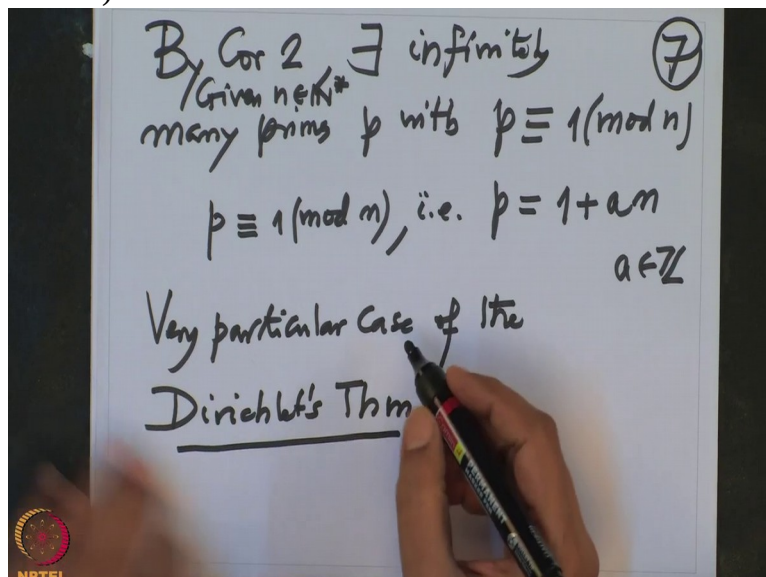 By Cor 2, ∃ infinitely ⑦
/Given n∈ℕ*
many prims p with p ≡ 1(mod n)
p ≡ 1(mod n), i.e. p = 1 + an
a ∈ ℤ
Very particular Case of the
Dirichlet's Thm
NPTEL